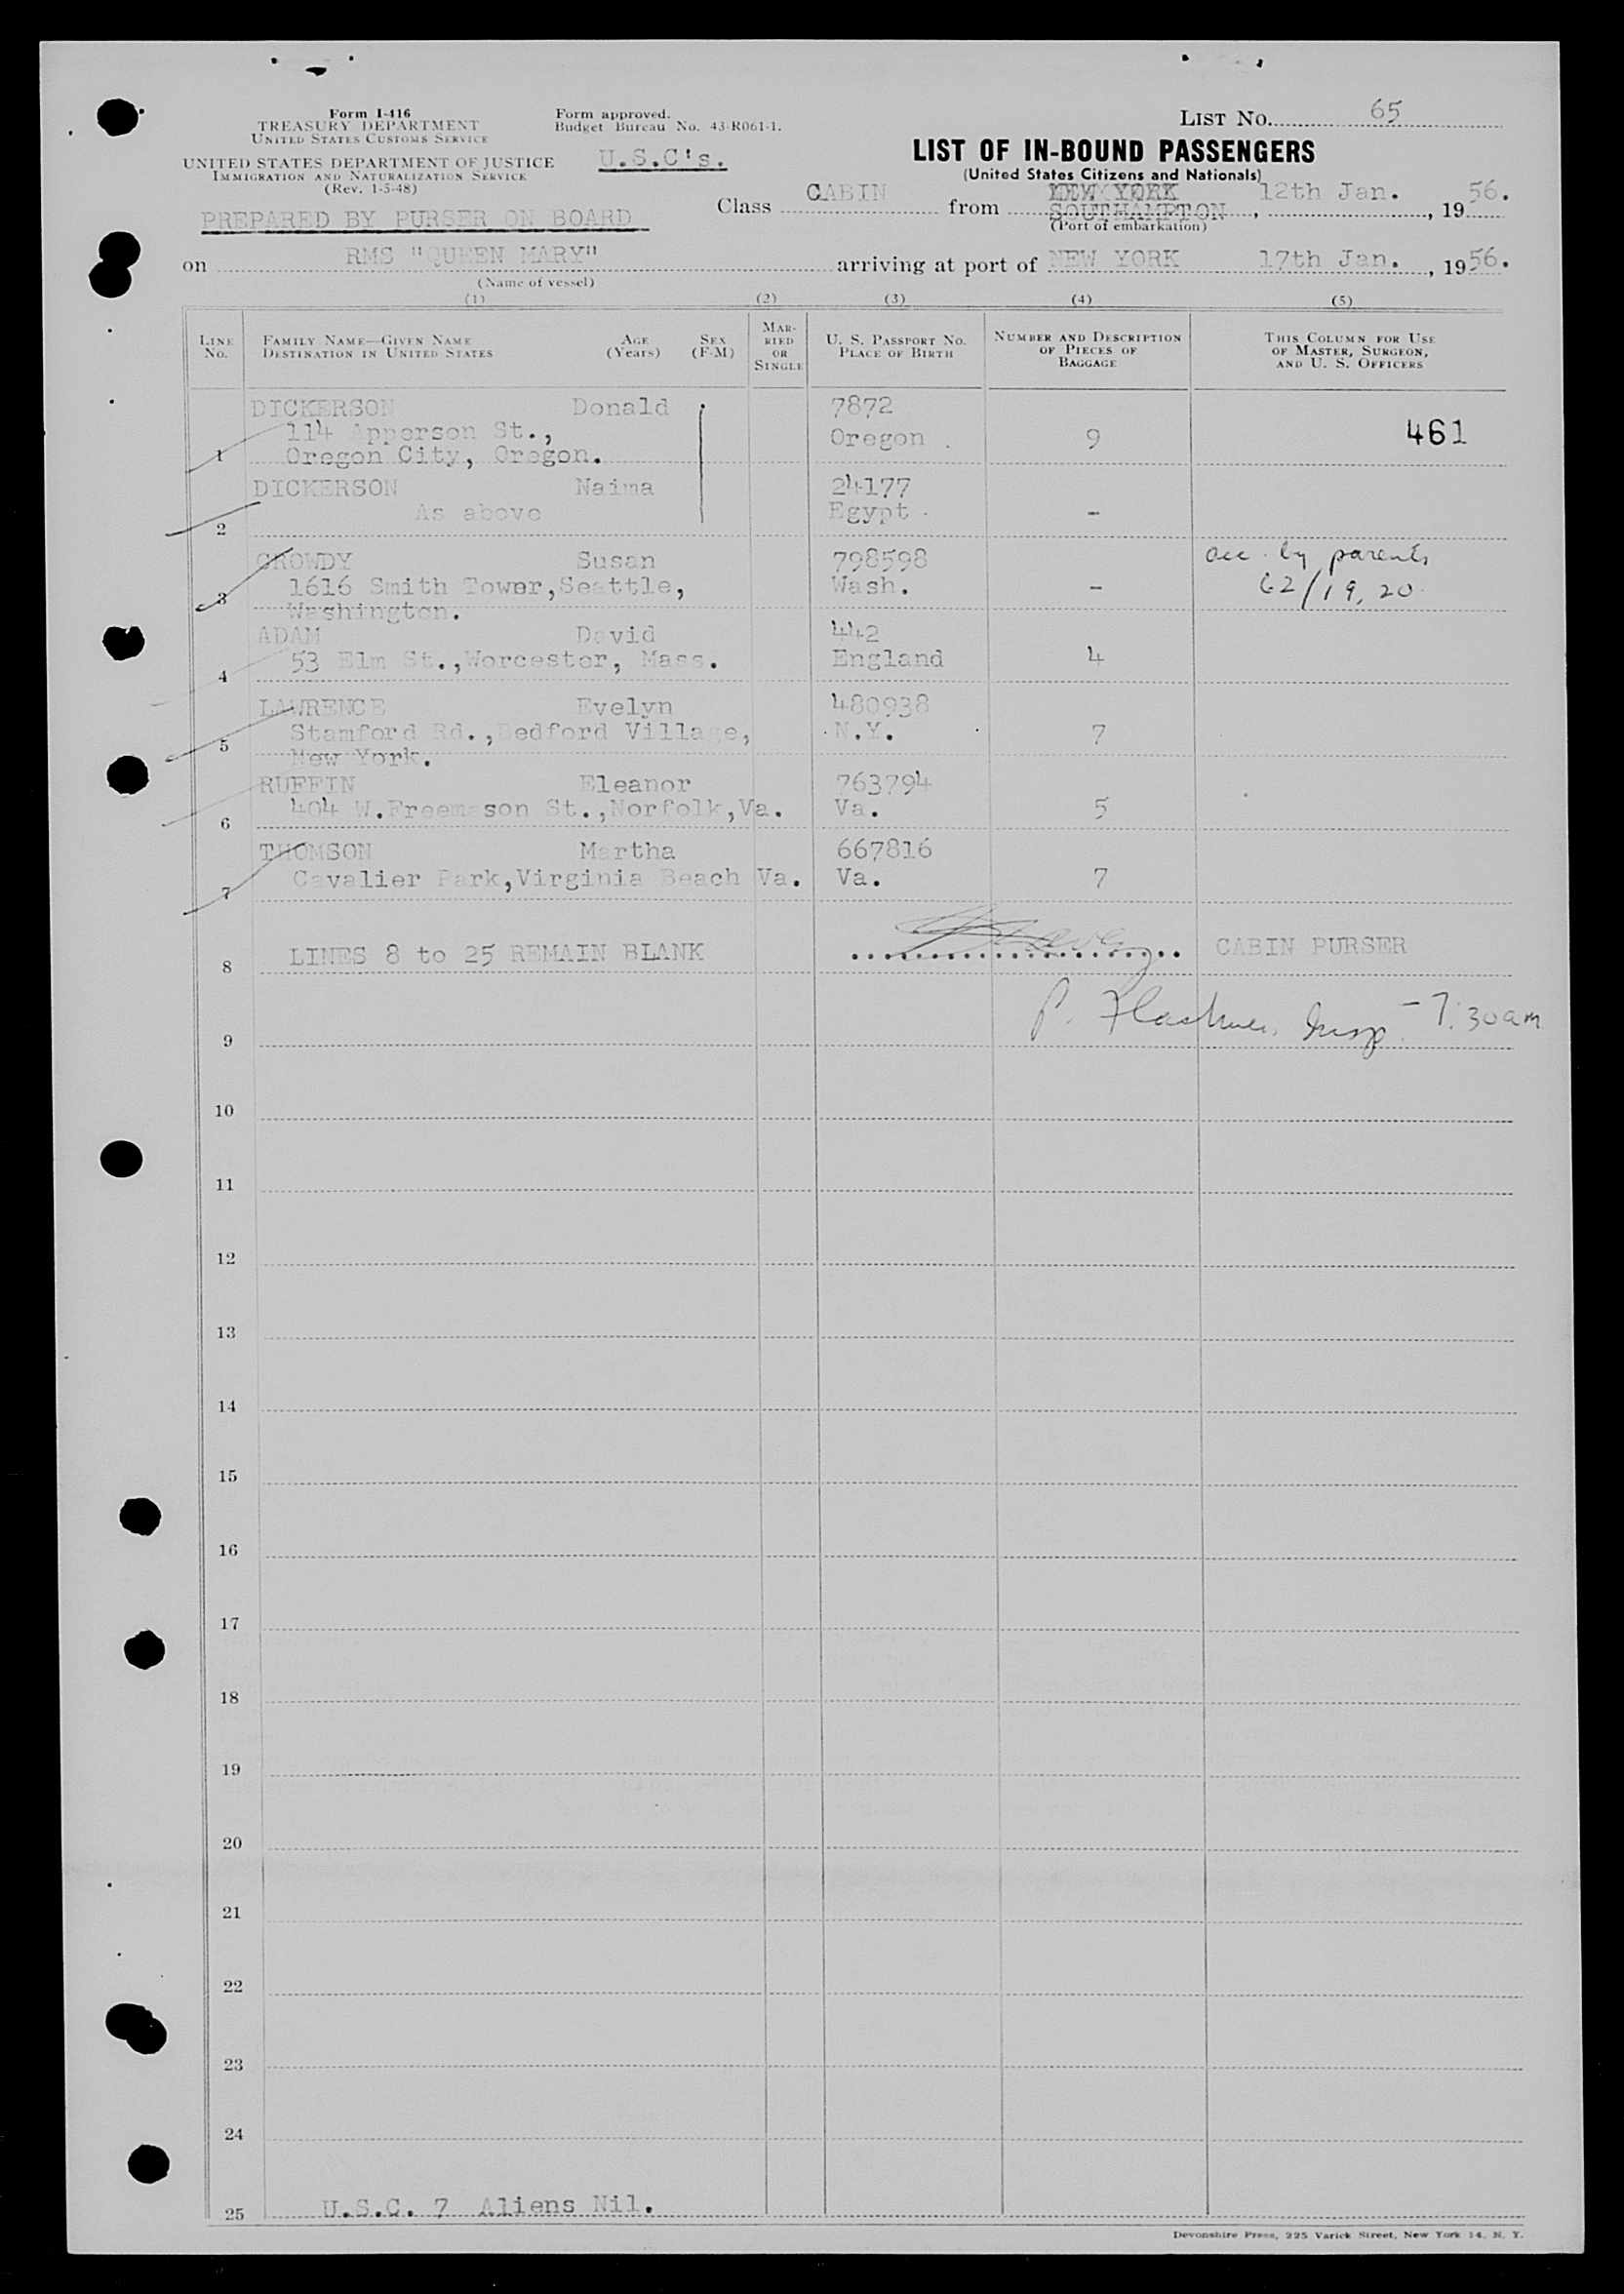 Form I-416
TREASURY DEPARTMENT
UNITED STATES CUSTOMS SERVICE
UNITED STATES DEPARTMENT OF JUSTICE
IMMIGRATION AND NATURALIZATION SERVICE
(Rev. 1-5-48)
Form approved.
Budget Bureau No. 43-R061-1.
U.S.C's.
LIST No. 65
LIST OF IN-BOUND PASSENGERS
(United States Citizens and Nationals)
PREPARED BY PURSER ON BOARD
NEW YORK
Class CABIN from SOUTHAMPTON, 12th Jan., 1956.
(Port of embarkation)
on RMS "QUEEN MARY" arriving at port of NEW YORK 17th Jan., 1956.
(Name of vessel)
(1) (2) (3) (4) (5)
LINE No.
FAMILY NAME—GIVEN NAME
DESTINATION IN UNITED STATES
AGE (Years)
SEX (F-M)
MARRIED OR SINGLE
U. S. PASSPORT No.
PLACE OF BIRTH
NUMBER AND DESCRIPTION OF PIECES OF BAGGAGE
THIS COLUMN FOR USE OF MASTER, SURGEON, AND U. S. OFFICERS
DICKERSON Donald 7872
114 Apperson St., Oregon . 9 461
1 Oregon City, Oregon.
DICKERSON Naima 24177
As above Egypt . -
2
CROWDY Susan 798598 acc. by parents
1616 Smith Tower,Seattle, Wash. - 62/19,20.
3 Washington.
ADAM David 442
53 Elm St.,Worcester, Mass. England 4
4
LAWRENCE Evelyn 480938
Stamford Rd.,Bedford Village, N.Y. 7
5 New York.
RUFFIN Eleanor 763794
404 W.Freemason St.,Norfolk,Va. Va. 5
6
THOMSON Martha 667816
Cavalier Park,Virginia Beach Va. Va. 7
7
LINES 8 to 25 REMAIN BLANK CABIN PURSER
8
P. Insp. - 7:30am
9
10
11
12
13
14
15
16
17
18
19
20
21
22
23
24
25 U.S.C. 7 Aliens Nil.
Devonshire Press, 225 Varick Street, New York 14, N. Y.